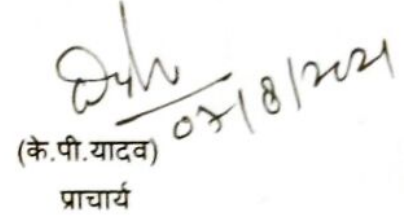 07/8/2021
(के.पी.यादव)
प्राचार्य